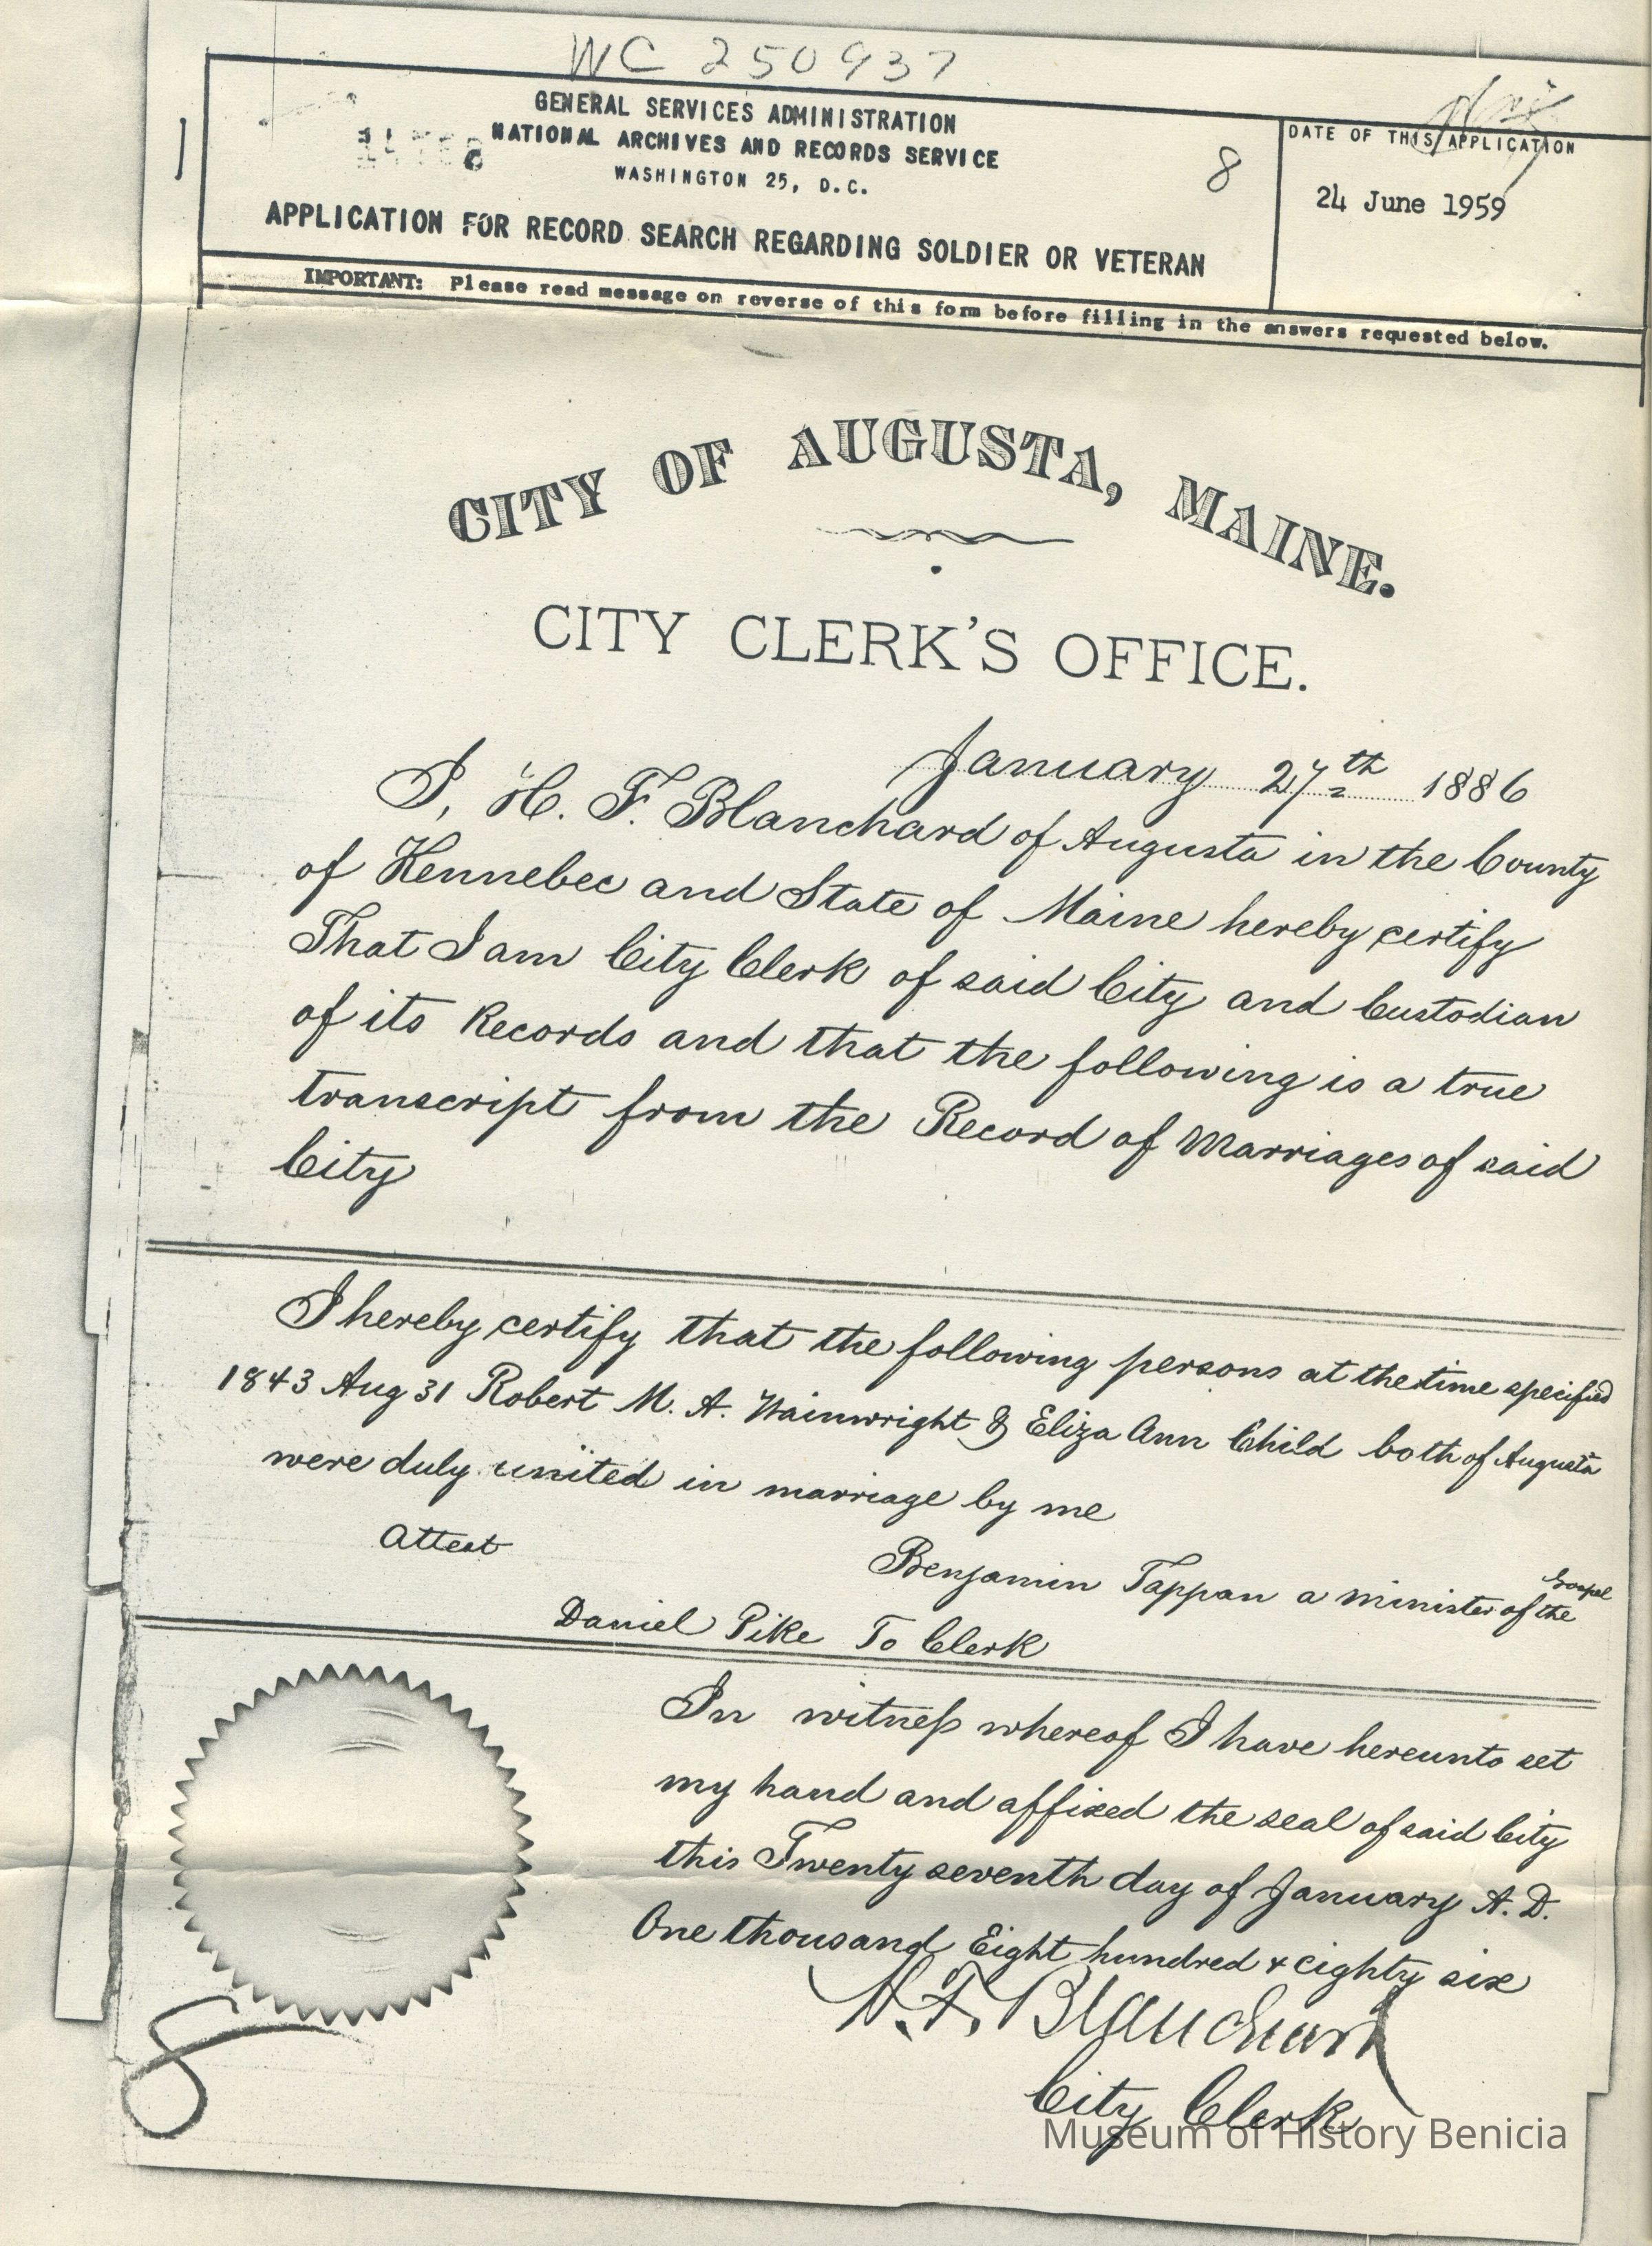 WC 250937
GENERAL SERVICES ADMINISTRATION
NATIONAL ARCHIVES AND RECORDS SERVICE
WASHINGTON 25, D.C.
8
APPLICATION FOR RECORD SEARCH REGARDING SOLDIER OR VETERAN
DATE OF THIS APPLICATION
24 June 1959
IMPORTANT: Please read message on reverse of this form before filling in the answers requested below.
CITY OF AUGUSTA, MAINE.
CITY CLERK'S OFFICE.
January 27th 1886
I, H. F. Blanchard of Augusta in the County
of Kennebec and State of Maine hereby certify
That I am City Clerk of said City and Custodian
of its Records and that the following is a true
transcript from the Record of Marriages of said
City
I hereby certify that the following persons at the time specified
1843 Aug 31 Robert M. A. Wainwright & Eliza Ann Child both of Augusta
were duly united in marriage by me
Attest
Benjamin Tappan a minister of the Gospel
Daniel Pike To Clerk
In witness whereof I have hereunto set
my hand and affixed the seal of said City
this Twenty seventh day of January A. D.
One thousand Eight hundred & eighty six
H. F. Blanchard
City Clerk
8
Museum of History Benicia